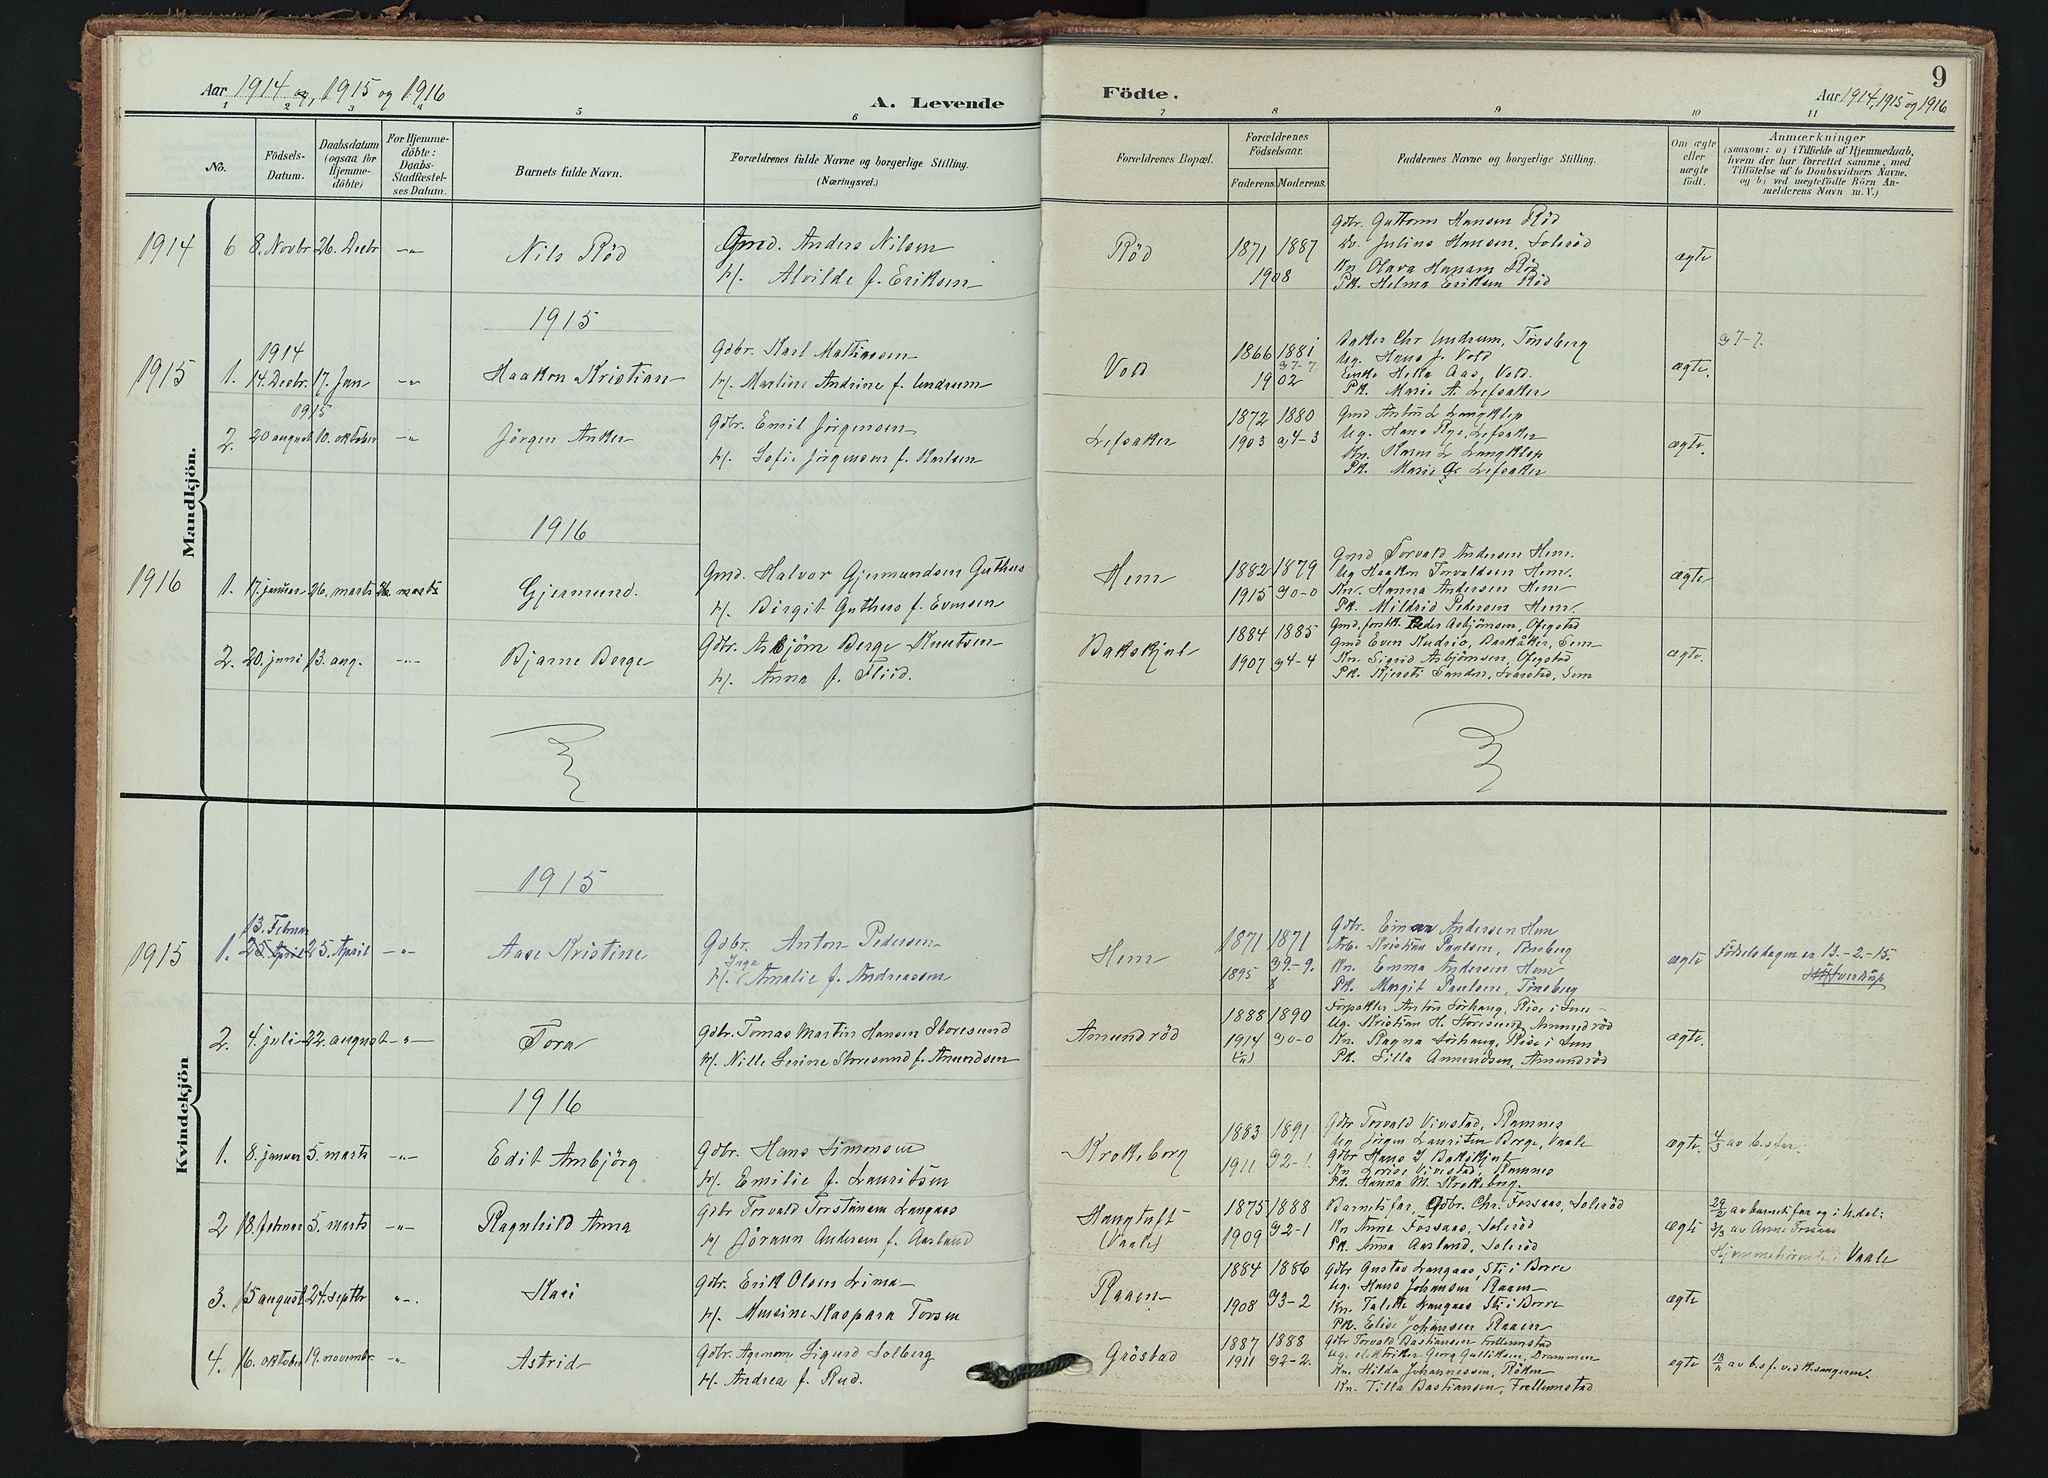 Aar 1914 og, 1915 og 1916
A. Levende
Födte.
9
Aar 1914, 1915 og 1916
1 2 3 4 5 6 7 8 9 10 11
No.
Födsels-
Datum.
Daabsdatum
(ogsaa for
Hjemme-
döbte)
For Hjemme-
döbte:
Daabs-
Stadfæstel-
ses Datum.
Barnets fulde Navn.
Forældrenes fulde Navne og borgerlige Stilling.
(Næringsvei.)
Forældrenes Bopæl.
Forældrenes
Födselsaar.
Faderens. Moderens.
Faddernes Navne og borgerlige Stilling.
Om ægte
eller
uægte
födt.
Anmærkninger
(saasom: a) i Tilfælde af Hjemmedaab,
hvem der har forrettet samme, med
Tilföielse af to Daabsvidners Navne,
og b) ved uægtefödte Börn An-
melderens Navn m. V.)
Mandkjön.
1914
6 8. Novbr 26. Decbr -"- Nils Röd
Gmd. Anders Nilsen
H/. Alvilde f. Eriksen
Röd
1871 1887
1908
Gdbr. Guttorm Hansen Röd
Do. Julius Hansen, Solerød
Kn Olava Hansen Röd
Pk. Helma Eriksen Röd
ægte
1915
1915
1914
1. 14. Decbr. 17. Jan -"- Haakon Kristian
Gdbr. Karl Mathiesen
H/. Martine Andrine f. Undrum
Vold
1866 1881
37-7.
1902
Baker Chr Undrum, Tønsberg
Ug. Hans J. Vold
Enke Helka Aas, Vold.
Pk. Marie A. Lefsaker
ægte.
37-7.
1915
2. 20 august 10. oktober -"- Jörgen Anker
Gdbr. Emil Jörgensen
H/. Sofie Jörgensen f. Karlsen
Lefsaker
1872 1880
1903 34-3
Gmd Anton L Langklep
Ug. Hans Rye, Lefsaker
Kn. Karen L Langklep
Pk. Marie G. Lefsaker
ægte.
1916
1916
1. 17. januar 26. marts 26. marts Gjermund.
Gmd. Halvor Gjermundsen Guthus
H/. Birgit Guthus f. Evensen
Hem
1882 1879
1915 30-0
Gmd Torvald Andersen Hem.
Ug Haakon Torvaldsen Hem.
Kn. Hanna Andersen Hem
Pk. Mildrid Pedersen Hem.
ægte
2. 20. juni 13. aug. -"- Bjarne Berge
Gdbr. Asbjörn Berge Knutsen
H/. Anna f. Fliid.
Bakskjul
1884 1885
1907 34-4
Gmd, forstk. Peder Asbjörnsen, Ofigstad
Gmd Even Kudrio, Barkåker, Sem
Kn. Sigrid Asbjörnsen, Ofigstad
Pk. Kjersti Sander, Svarstad, Sem
ægte.
Kvindekjön
1915
1915
13. Februar
1. 25. April 25. April -"- Aase Kristine
Gdbr. Anton Pedersen
Inga
H/. Amalie f. Andreassen
Hem
1871 1871
1895 39-9.
8
Gdbr. Einar Andersen Hem
Arb. Kristian Paulsen, Tönsberg
Kn. Emma Andersen Hem
Pk. Margit Paulsen, Tönsberg
ægte
Födselsdagen er 13.-2.-15.
2. 4. juli 22. august -"- Tora
Gdbr. Tomas Martin Hansen Storesund
H/. Nille Serine Storesund f. Amundsen
Amundröd
1888 1890
1914 30-0
Forpakter Anton Sörhaug, Rise i Sem
Ug. Kristian H. Storesund, Amundröd
Kn. Ragna Sörhaug, Rise i Sem
Pk. Silla Amundsen, Amundröd
ægte.
1916
1. 8. januar 5. marts -"- Edit Ambjörg
Gdbr. Hans Simonsen
H/. Emilie f. Lauritsen
Krokeborg
1883 1891
1911 32-1.
Gdbr Torvald Vivestad, Ramnes
Ug Jörgen Lauritsen Berge, Vaale
Gdbr Hans J. Bakskjul
Kn Lovise Vivestad, Ramnes
Pk. Hanna M. Krokeborg.
ægte.
4/3 av b.s far.
2 18. februar 5. marts -"- Ragnhild Anna
Gdbr Torvald Torstensen Langaas
H/ Jörann Andersen f. Aasland
Haugtuft
(Vaale)
1875 1888
1909 32-1
Barnets far, Gdbr. Chr. Fossaas, Soleröd
Kn Anne Fossaas, Solerød
Pk. Anna Aasland, Solerød
ægte
29/2 av barnets far og i h. del:
3/3 av Anne Fossaas
Hjemmehörende i Vaale
3. 15 august 24. septbr -"- Kari
Gdbr. Erik Olsen Lima
H/. Mensine Kaspara Torsen
Raaen
1884 1886
1908 33-2
Gdbr Gustav Langaas, Sti i Borre
Ug. Hans Johansen Raaen
Kn. Talette Langaas Sti i Borre
Pk. Elise Johansen Raaen
ægte
4. 16. oktober 19. novembr. -"- Astrid
Gdbr. Agronom Sigurd Solberg
H/. Andrea f. Rud.
Gröstad
1887 1888
1911 32-2.
Gdbr Torvald Bastiansen Frellumstad
Ug. elektriker Georg Gulliksen, Drammen
Kn. Hilda Johannessen, Röken
Kn. Tilla Bastiansen, Frellumstad
egte
av b.s f. ved k.sangeren.